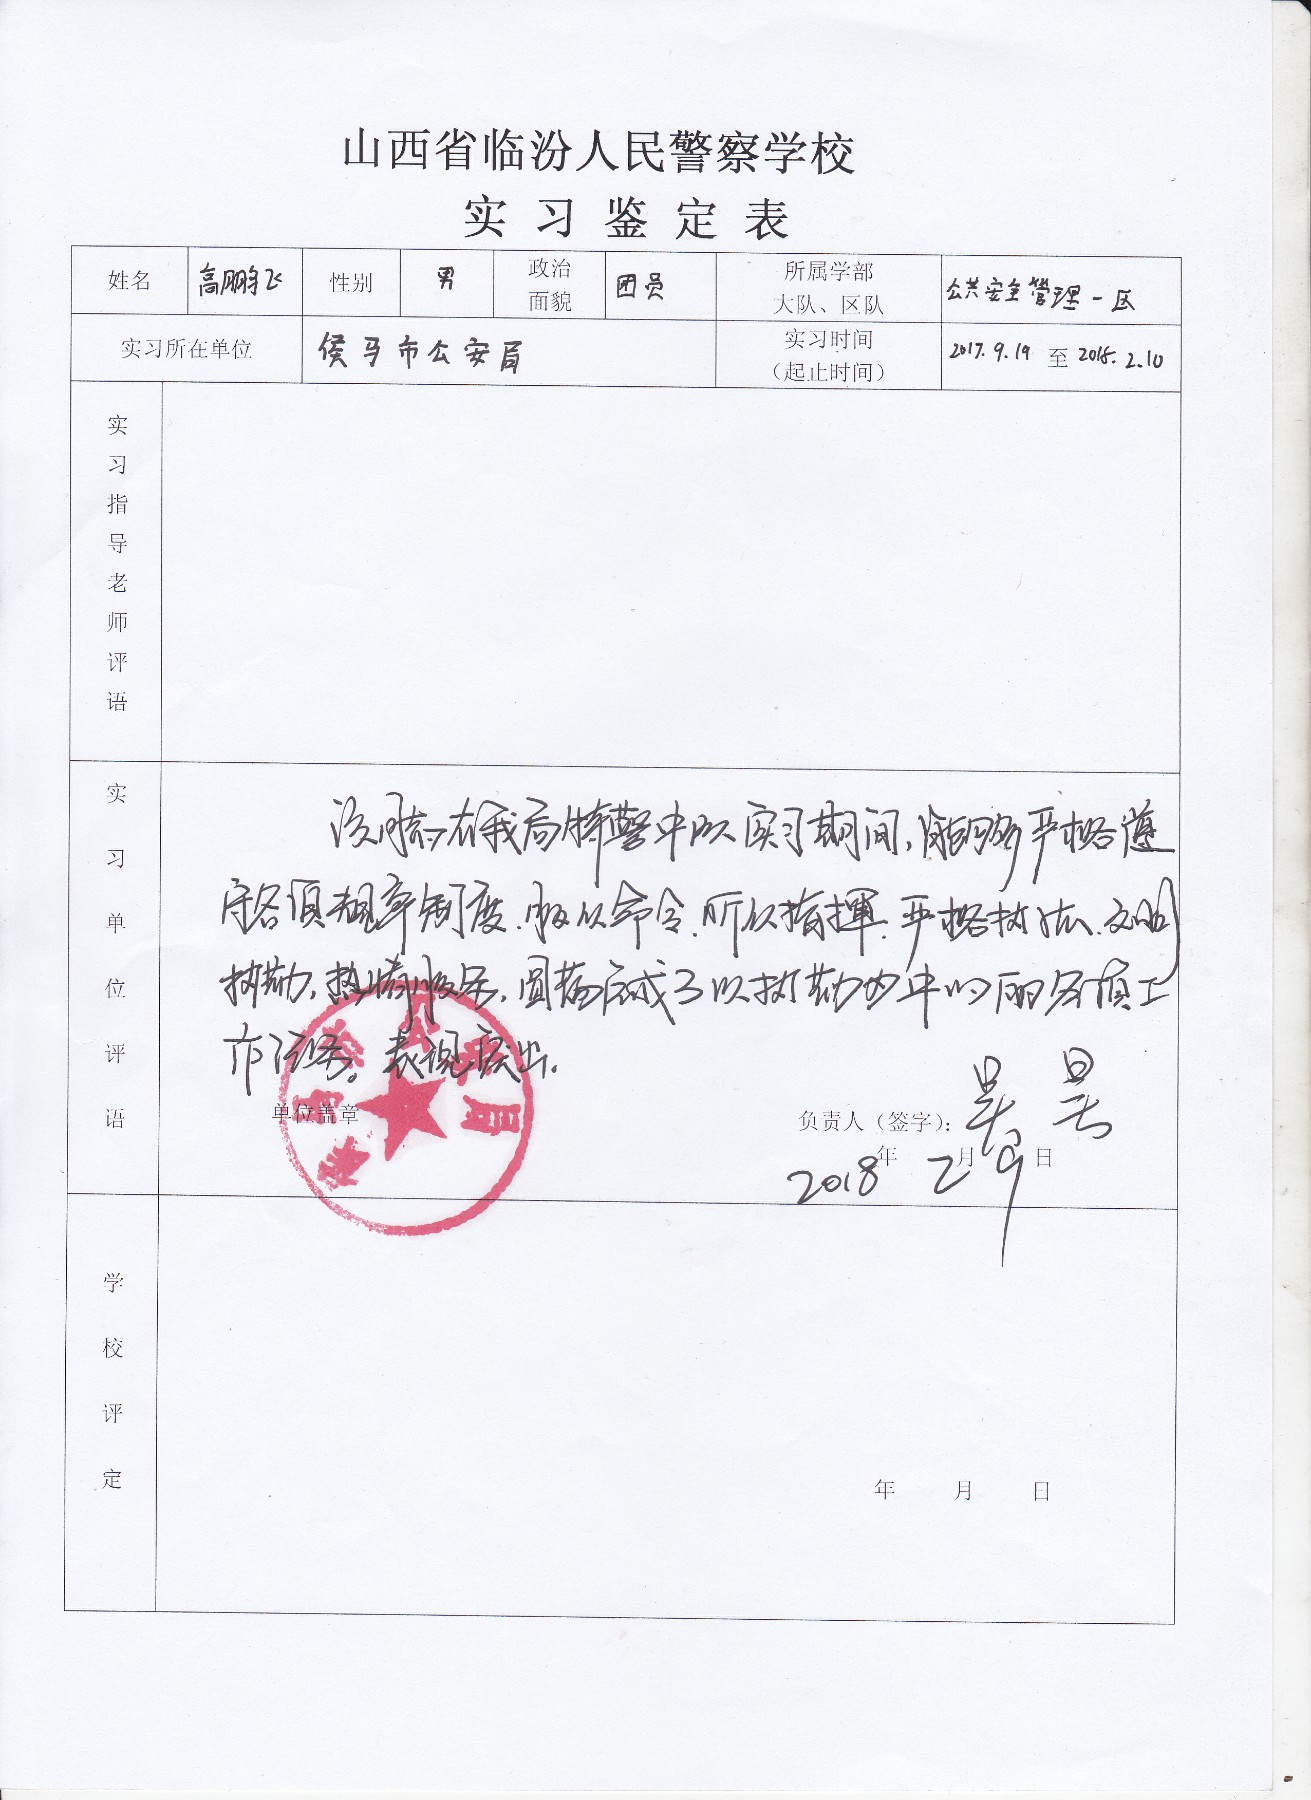 山西省临汾人民警察学校
实习鉴定表
姓名 高鹏飞 性别 男 政治面貌 团员 所属学部大队、区队 公共安全管理一区
实习所在单位 侯马市公安局 实习时间（起止时间） 2017.9.19 至 2018.2.10
实习指导老师评语
实习单位评语
该同志在我局特警中队实习期间,能够严格遵
守各项规章制度.服从命令.听从指挥.严格执法.文明
执勤,热情服务,圆满完成了以执勤为中心的各项工
作任务。表现突出.
单位盖章
侯马市公安局
负责人（签字）:
2018年 2月 9日
学校评定
年 月 日